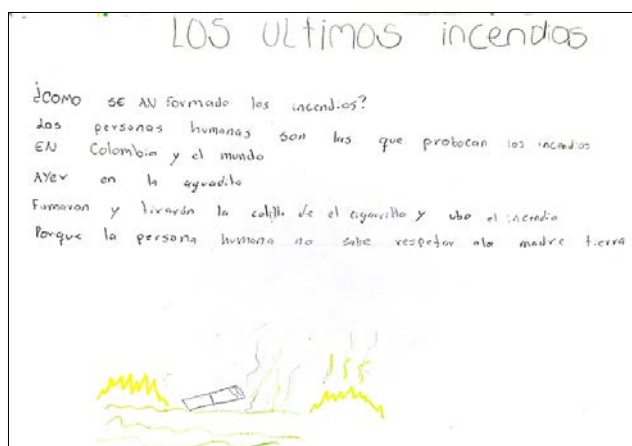 LOS ULtimos incendios
¿COMO SE AN Formado los incendios?
Las personas humanas son las que probocan los incendios
EN Colombia y el mundo
AYer en la aguadita
Fumaron y tiraron la colilla de el cigarrillo y ubo el incendio
Porque la persona humana no sabe respetar ala madre tierra